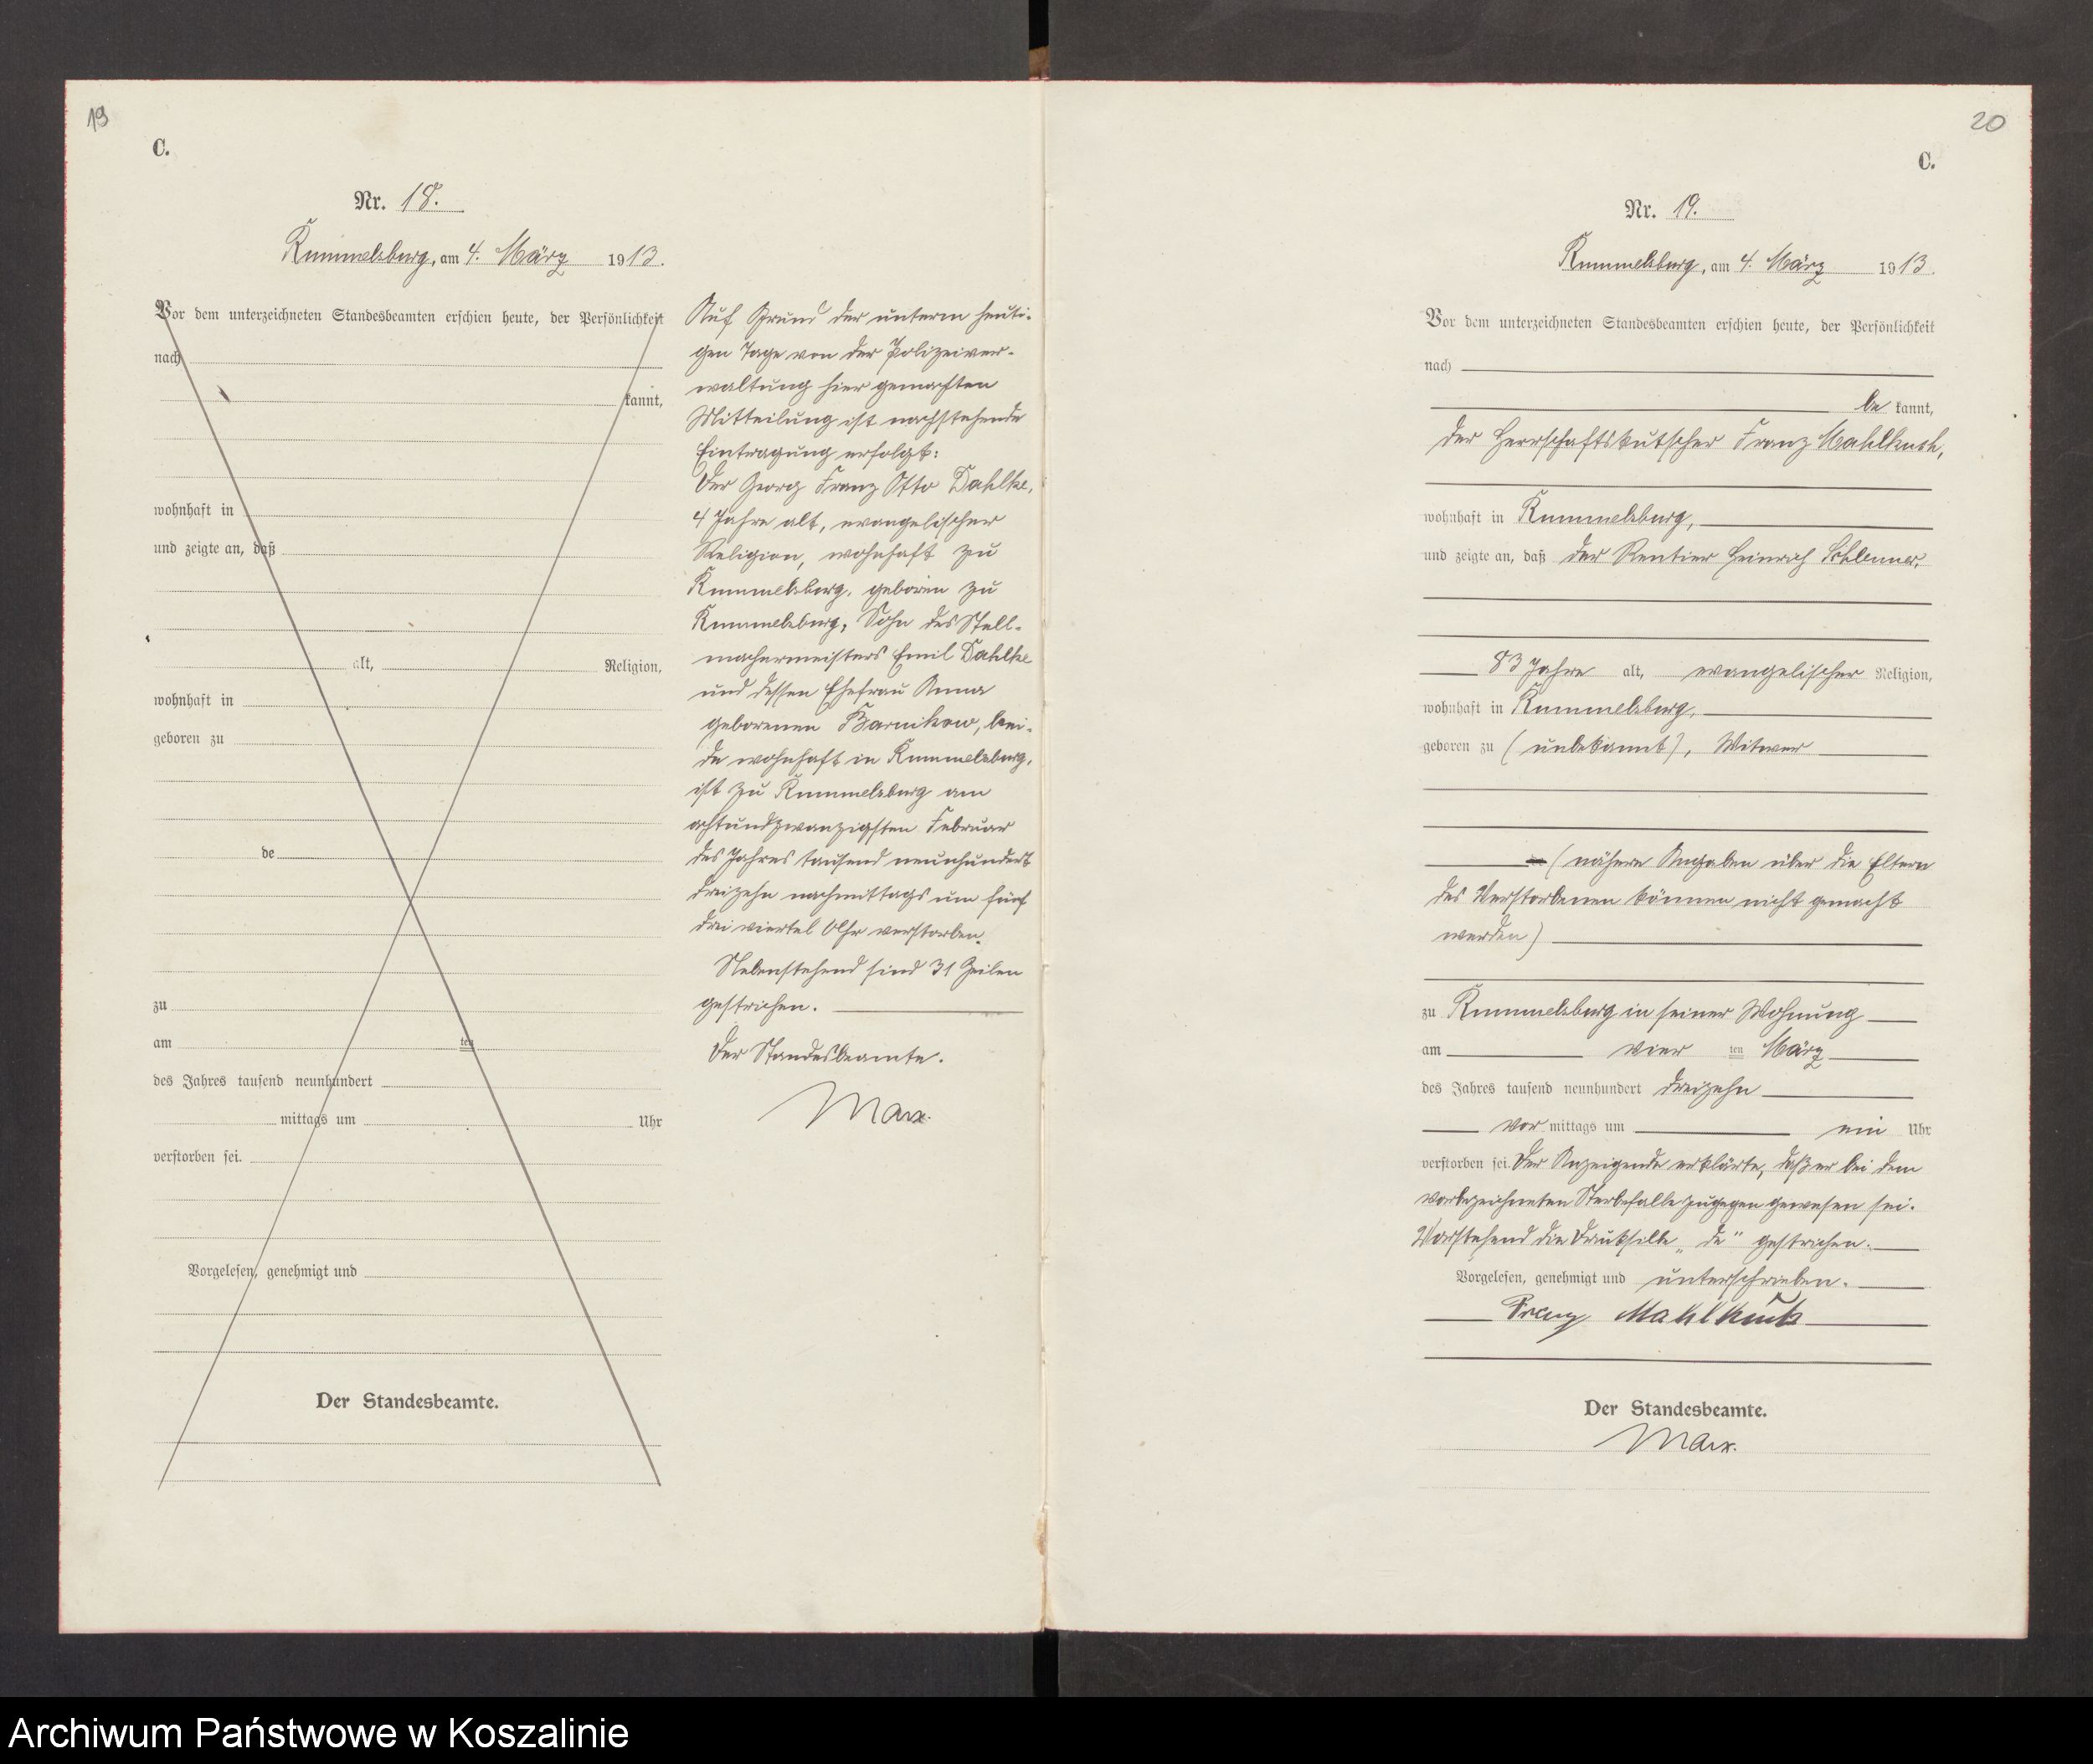 19
C.
Nr. 18.
Rummelsburg, am 4. März 1913.
Vor dem unterzeichneten Standesbeamten erschien heute, der Persönlichkeit
nach
kannt,
wohnhaft in
und zeigte an, daß
alt, Religion,
wohnhaft in
geboren zu
de
zu
am ten
des Jahres tausend neunhundert
mittags um Uhr
verstorben sei.
Vorgelesen, genehmigt und
Der Standesbeamte.
Auf Grund der unterm heuti-
gen Tage von der Polizeiver-
waltung hier gemachten
Mitteilung ist nachstehende
Eintragung erfolgt:
Der Georg Franz Otto Dahlke,
4 Jahre alt, evangelischer
Religion, wohnhaft zu
Rummelsburg, geboren zu
Rummelsburg, Sohn des Stell-
machermeisters Emil Dahlke
und dessen Ehefrau Anna
geborenen Barnikow, bei-
de wohnhaft in Rummelsburg,
ist zu Rummelsburg am
achtundzwanzigsten Februar
des Jahres tausend neunhundert
dreizehn nachmittags um fünf
drei viertel Uhr verstorben.
Nebenstehend sind 31 Zeilen
gestrichen.
Der Standesbeamte.
Marx.
20
C.
Nr. 19.
Rummelsburg, am 4. März 1913.
Vor dem unterzeichneten Standesbeamten erschien heute, der Persönlichkeit
nach
be kannt,
der Herrschaftskutscher Franz Mahlkuch,
wohnhaft in Rummelsburg,
und zeigte an, daß der Rentier Heinrich
83 Jahre alt, evangelischer Religion,
wohnhaft in Rummelsburg,
geboren zu (unbekannt), Witwer
(nähere Angaben über die Eltern
des Verstorbenen können nicht gemacht
werden)
zu Rummelsburg in seiner Wohnung
am vier ten März
des Jahres tausend neunhundert dreizehn
vor mittags um ein Uhr
verstorben sei. Der Anzeigende erklärte, daß er bei dem
vorbezeichneten Sterbefalle zugegen gewesen sei.
Vorstehend die Drucksilbe „de" gestrichen.
Vorgelesen, genehmigt und unterschrieben.
Franz
Der Standesbeamte.
Marx.
Archiwum Państwowe w Koszalinie